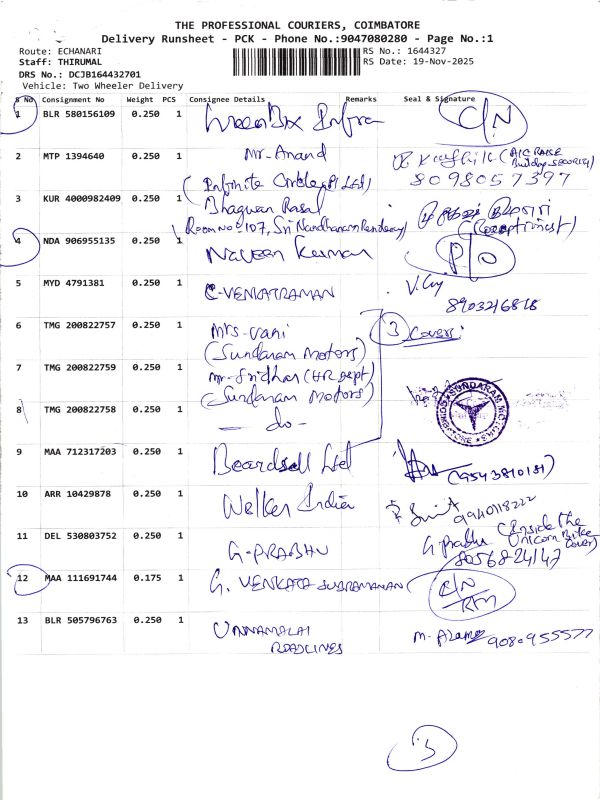 THE PROFESSIONAL COURIERS, COIMBATORE
Delivery Runsheet - PCK - Phone No.:9047080280 - Page No.:1
Route: ECHANARI RS No.: 1644327
Staff: THIRUMAL RS Date: 19-Nov-2025
DRS No.: DCJB164432701
Vehicle: Two Wheeler Delivery
S No Consignment No Weight PCS Consignee Details Remarks Seal & Signature
1 BLR 580156109 0.250 1 Infra C/N
2 MTP 1394640 0.250 1 Mr. Anand
8098057397
(Infinite Pvt Ltd)
3 KUR 4000982409 0.250 1 Bhagwan Rasal
Room No: 107, Sri (Receptionist)
4 NDA 906955135 0.250 1 Naveen Kumar P/O
5 MYD 4791381 0.250 1 C-VENKATRAMAN
8903216818
6 TMG 200822757 0.250 1 Mrs-Vani 3 Covers
(Sundaram Motors)
7 TMG 200822759 0.250 1 Mr-Sridhar (HR Dept)
(Sundaram Motors) SUNDARAM MOTORS COIMBATORE
8 TMG 200822758 0.250 1 -do-
9 MAA 712317203 0.250 1 Beardsell Ltd (9543810151)
10 ARR 10429878 0.250 1 Welker India 9940118222
11 DEL 530803752 0.250 1 G-PRABHU G Prabhu (Inside the Unicorn Bike Cover)
8056824147
12 MAA 111691744 0.175 1 G. VENKATA SUBRAMANIAN C/N
13 BLR 505796763 0.250 1 UNNAMALAI ROADLINES 9080955577
3